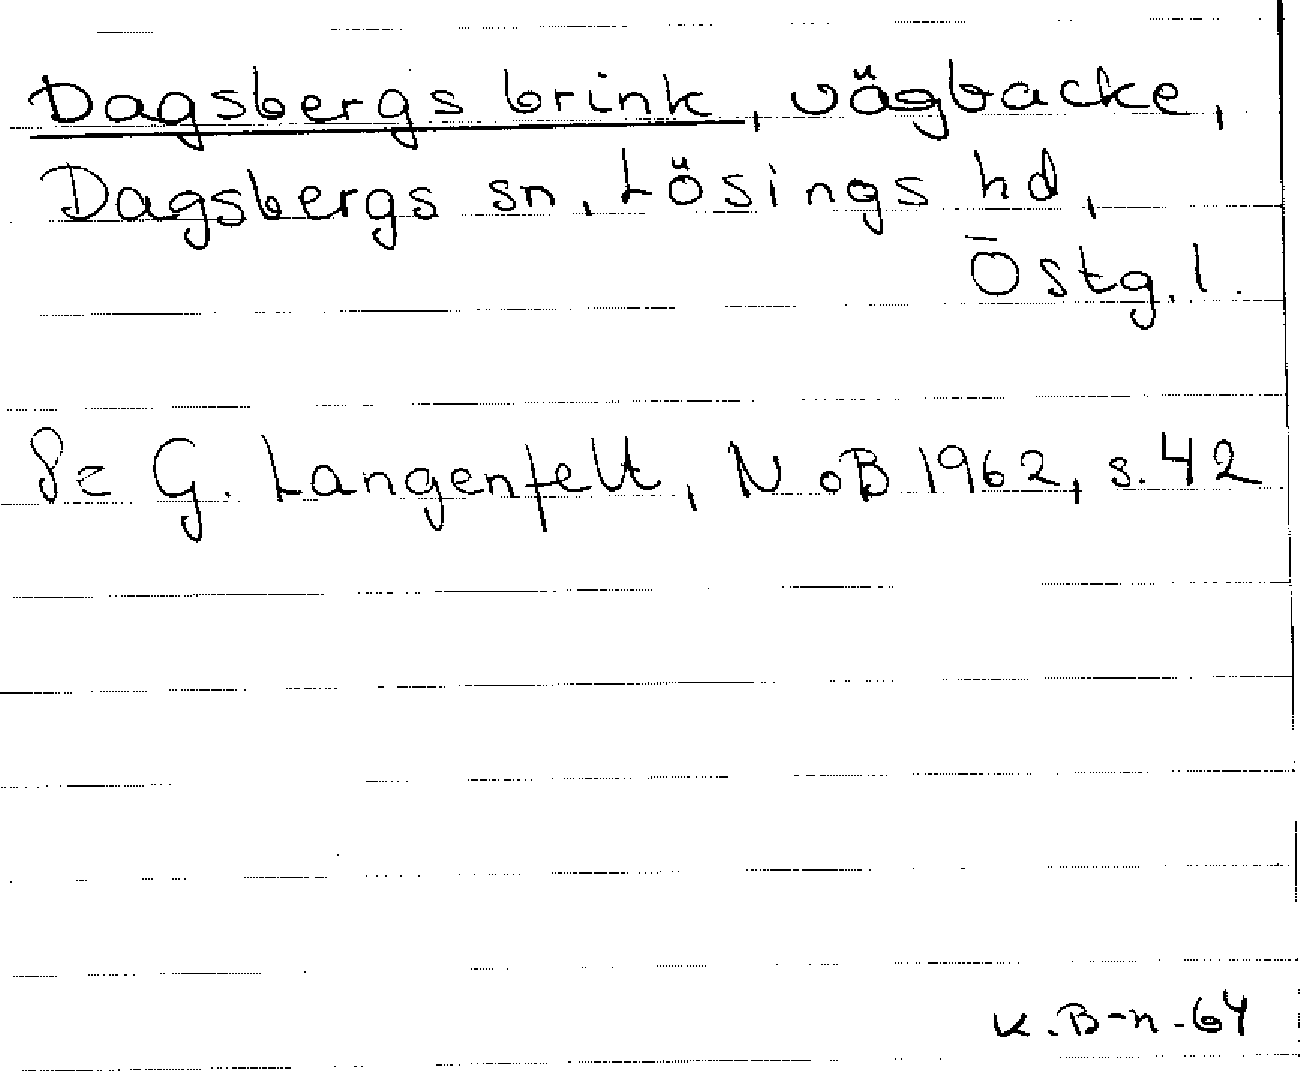 Dagsbergs brink, vägbacke,
Dagsbergs sn, Lösings hd,
Östg. l.
Se G. Langenfelt, NoB 1962, s. 42
K. B-n -64